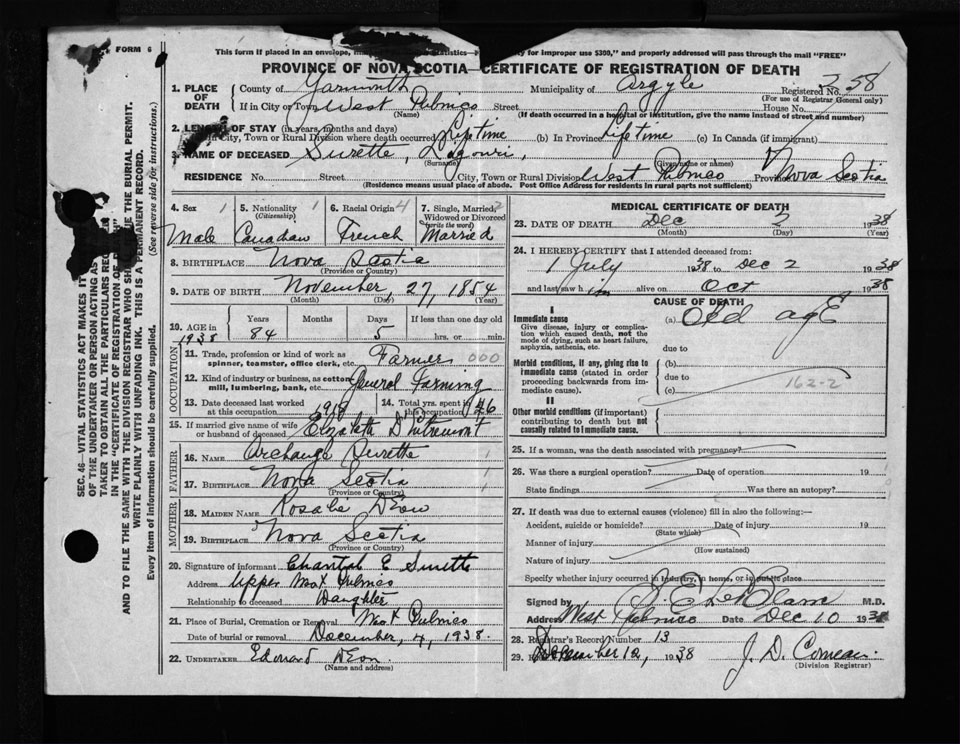 FORM 6
This form if placed in an envelope, for improper use $300," and properly addressed will pass through the mail "FREE"
PROVINCE OF NOVA SCOTIA—CERTIFICATE OF REGISTRATION OF DEATH
1. PLACE OF DEATH County of Yarmouth Municipality of Argyle Registered No. 258
(For use of Registrar General only)
If in City or Town West Pubnico Street House No.
(Name) (If death occurred in a hospital or institution, give the name instead of street and number)
2. LENGTH OF STAY (in years, months and days)
In City, Town or Rural Division where death occurred Lifetime (b) In Province Lifetime (c) In Canada (if immigrant)
3. NAME OF DECEASED Surette, Ligouri,
(Surname) (Given name or names)
RESIDENCE No. Street City, Town or Rural Division West Pubnico Province Nova Scotia
(Residence means usual place of abode. Post Office Address for residents in rural parts not sufficient)
4. Sex 1 5. Nationality 1 (Citizenship) 6. Racial Origin 4 7. Single, Married, 2 Widowed or Divorced (write the word)
Male Canadian French Married
8. BIRTHPLACE Nova Scotia
(Province or Country)
9. DATE OF BIRTH November, 27, 1854
(Month) (Day) (Year)
10. AGE in Years Months Days If less than one day old
1938 84 5 hrs. or min.
OCCUPATION
11. Trade, profession or kind of work as spinner, teamster, office clerk, etc. Farmer 000
12. Kind of industry or business, as cotton mill, lumbering, bank, etc. General Farming
13. Date deceased last worked at this occupation 14. Total yrs. spent in this occupation
15. If married give name of wife or husband of deceased Elizabeth D'Entremont
FATHER
16. NAME Archange Surette
17. BIRTHPLACE Nova Scotia
(Province or Country)
MOTHER
18. MAIDEN NAME Rosalie D'Eon
19. BIRTHPLACE Nova Scotia
(Province or Country)
20. Signature of informant Chantal E Surette
Address Upper West Pubnico
Relationship to deceased Daughter
21. Place of Burial, Cremation or Removal West Pubnico
Date of burial or removal December, 4, 1938.
22. UNDERTAKER Edouard D'Eon
(Name and address)
MEDICAL CERTIFICATE OF DEATH
23. DATE OF DEATH Dec 2 1938
(Month) (Day) (Year)
24. I HEREBY CERTIFY that I attended deceased from:
1 July 1938 to Dec 2 1938
and last saw him alive on Oct 1938
CAUSE OF DEATH
I
Immediate cause (a) Old age
Give disease, injury or complication which caused death, not the mode of dying, such as heart failure, asphyxia, asthenia, etc. due to
Morbid conditions, if any, giving rise to immediate cause (stated in order proceeding backwards from immediate cause). (b)
due to 162-2
(c)
II
Other morbid conditions (if important) contributing to death but not causally related to Immediate cause.
25. If a woman, was the death associated with pregnancy?
26. Was there a surgical operation? Date of operation 19
State findings Was there an autopsy?
27. If death was due to external causes (violence) fill in also the following:—
Accident, suicide or homicide? Date of injury 19
(State which)
Manner of injury
(How sustained)
Nature of injury
Specify whether injury occurred in industry, in home, or in public place
Signed by J. E. LeBlanc M.D.
Address West Pubnico Date Dec 10 1938
28. Registrar's Record Number 13
29. December 12, 1938 J. D. Comeau.
(Division Registrar)
SEC. 46—VITAL STATISTICS ACT MAKES IT
OF THE UNDERTAKER OR PERSON ACTING AS
TAKER TO OBTAIN ALL THE PARTICULARS
IN THE "CERTIFICATE OF REGISTRATION OF D
AND TO FILE THE SAME WITH THE DIVISION REGISTRAR WHO THE BURIAL PERMIT.
WRITE PLAINLY WITH UNFADING INK. THIS IS A PERMANENT RECORD.
Every item of information should be carefully supplied. (See reverse side for instructions.)